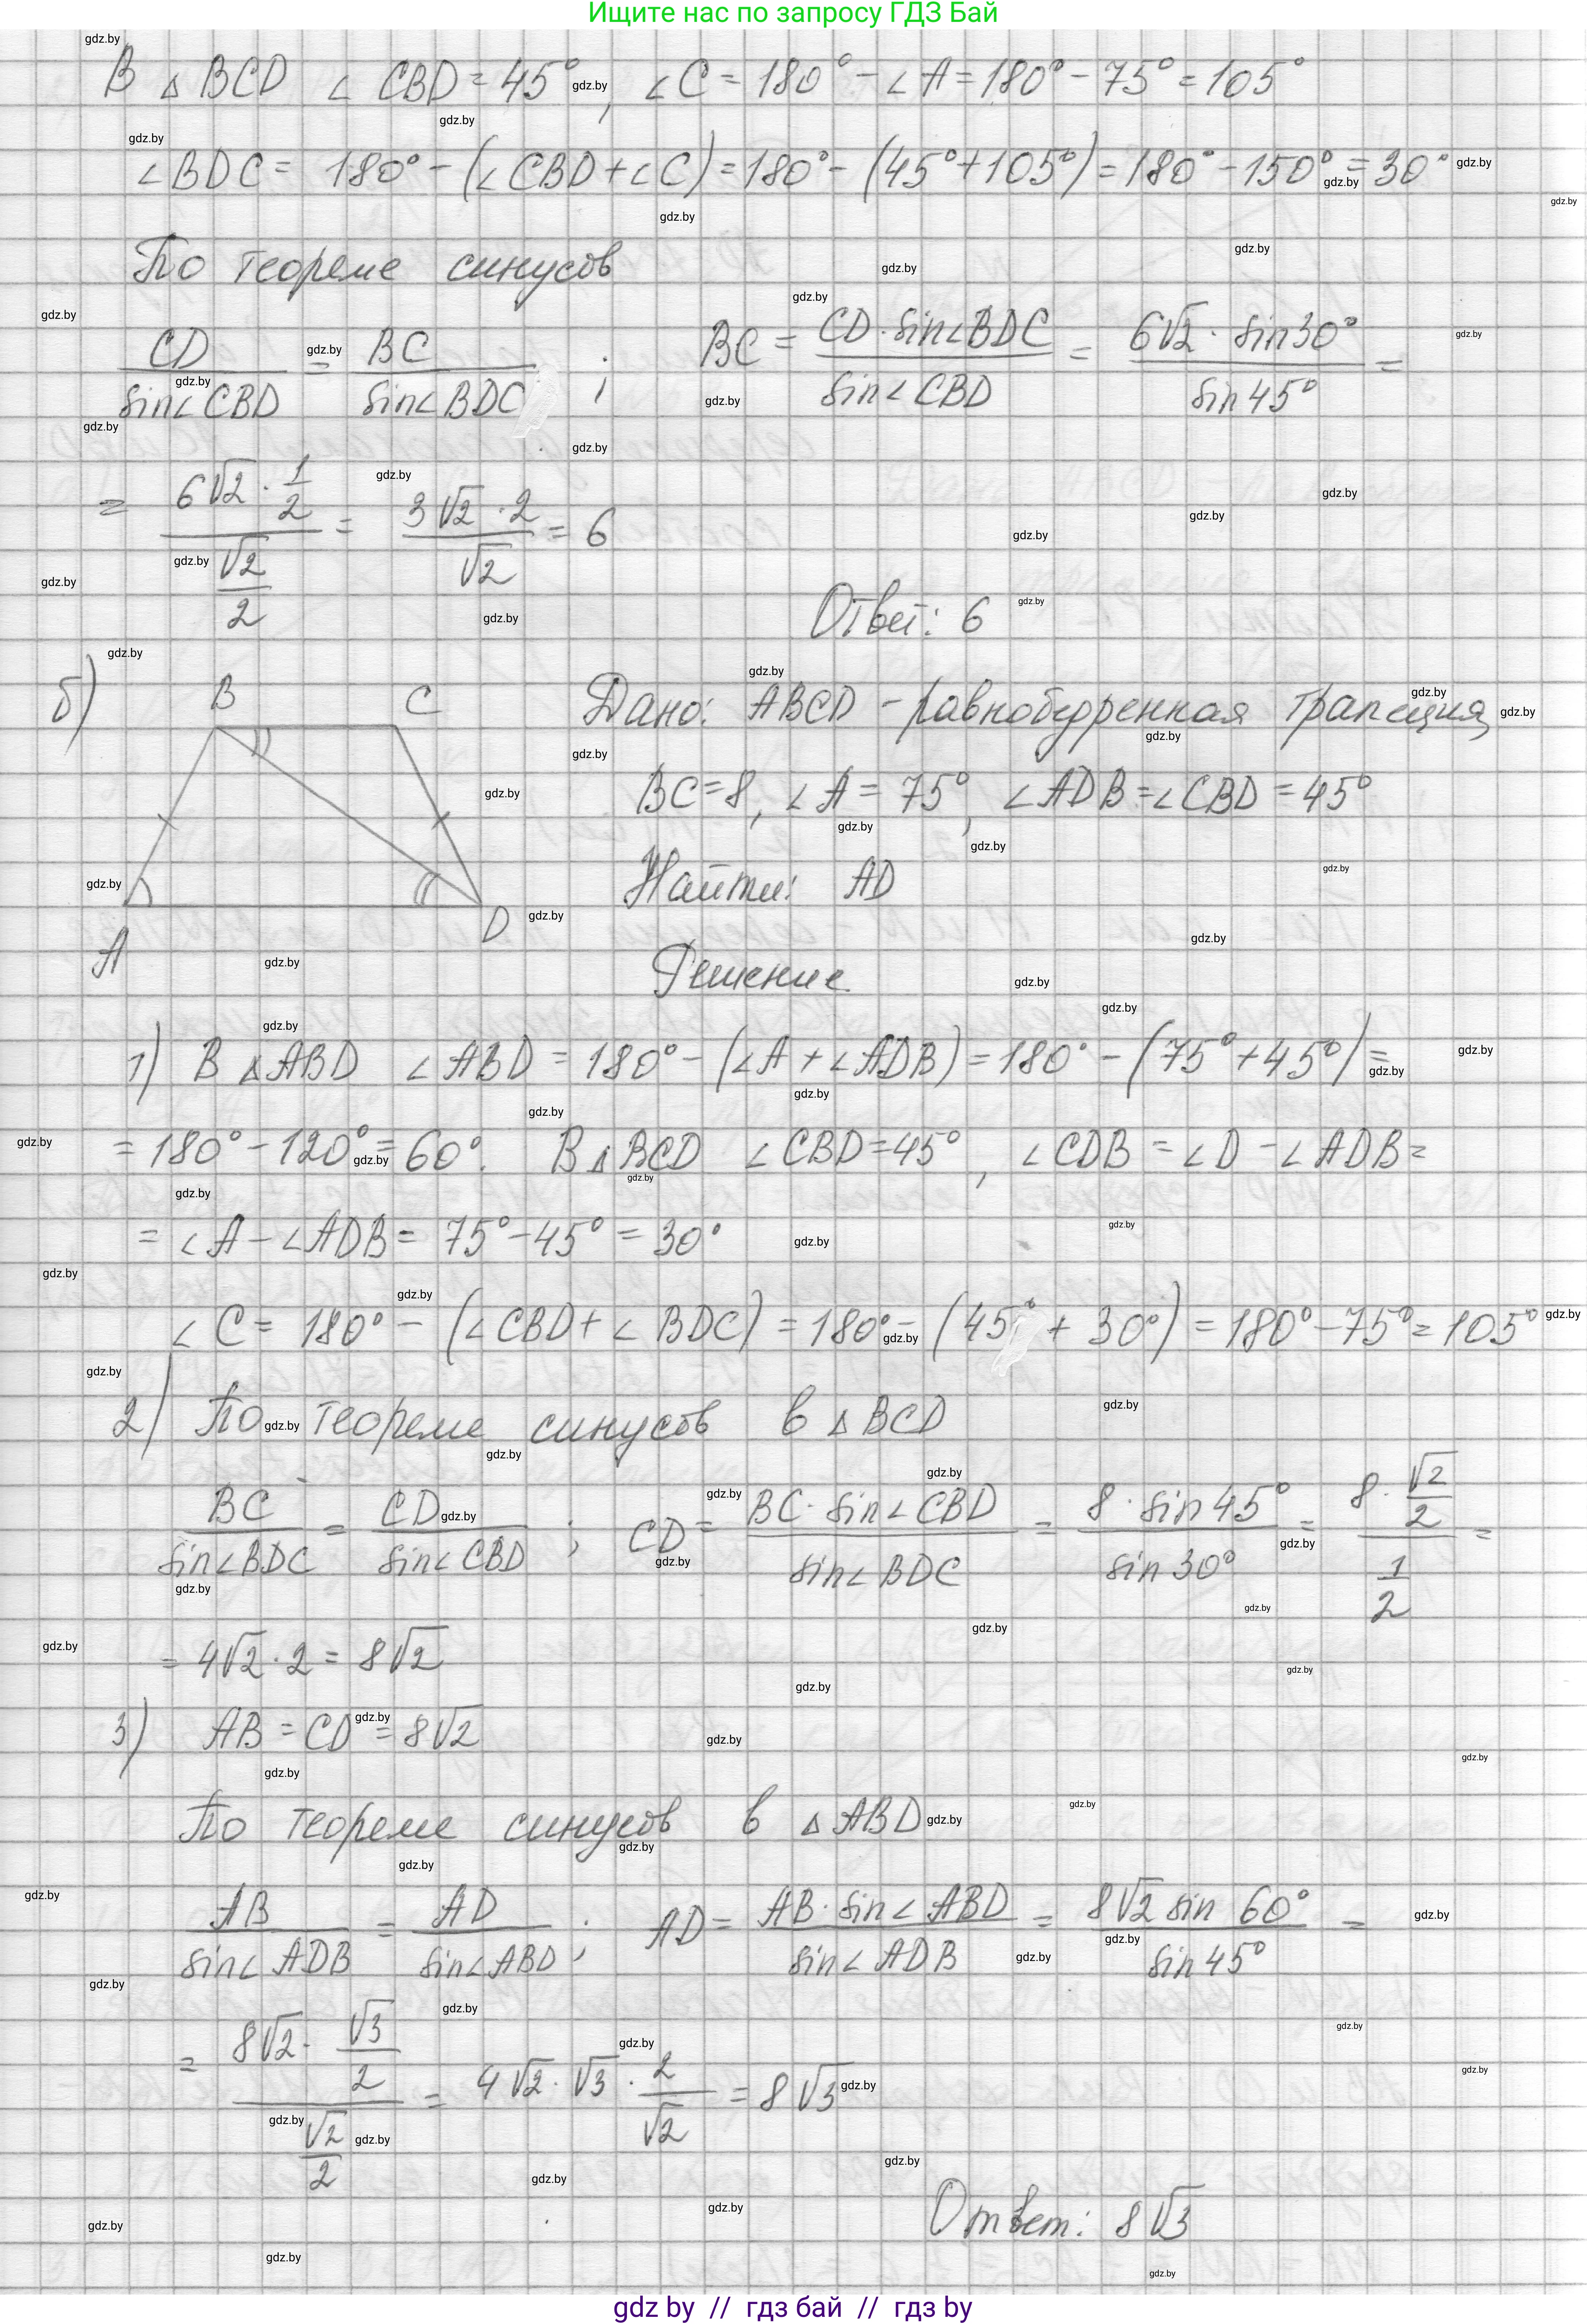 Ищите нас по запросу ГДЗ Бай
В △ BCD ∠ CBD = 45°, ∠ C = 180° - ∠ A = 180° - 75° = 105°
∠ BDC = 180° - (∠ CBD + ∠ C) = 180° - (45° + 105°) = 180° - 150° = 30°
По теореме синусов
CD / sin∠CBD = BC / sin∠BDC ; BC = CD · sin∠BDC / sin∠CBD = 6√2 · sin30° / sin45° =
= (6√2 · 1/2) / (√2/2) = 3√2 · 2 / √2 = 6
Ответ: 6
б) B C Дано: ABCD - равнобедренная трапеция,
BC = 8, ∠A = 75°, ∠ADB = ∠CBD = 45°
Найти: AD
A D
Решение
1) В △ABD ∠ABD = 180° - (∠A + ∠ADB) = 180° - (75° + 45°) =
= 180° - 120° = 60°. В △BCD ∠CBD = 45°, ∠CDB = ∠D - ∠ADB =
= ∠A - ∠ADB = 75° - 45° = 30°
∠C = 180° - (∠CBD + ∠BDC) = 180° - (45° + 30°) = 180° - 75° = 105°
2) По теореме синусов в △BCD
BC / sin∠BDC = CD / sin∠CBD ; CD = BC · sin∠CBD / sin∠BDC = 8 · sin45° / sin30° = (8 · √2/2) / (1/2) =
= 4√2 · 2 = 8√2
3) AB = CD = 8√2
По теореме синусов в △ABD
AB / sin∠ADB = AD / sin∠ABD ; AD = AB · sin∠ABD / sin∠ADB = 8√2 sin 60° / sin45° =
= (8√2 · √3/2) / (√2/2) = 4√2 · √3 · 2/√2 = 8√3
Ответ: 8√3
gdz by // гдз бай // гдз by